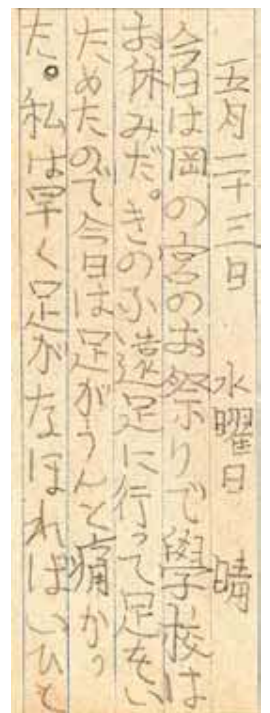 五月二十三日 水曜日 晴
今日は岡の宮のお祭りで學校は
お休みだ。きのふ遠足に行って足をい
ためたので今日は足がうんと痛かっ
た。私は早く足がなほればいひと